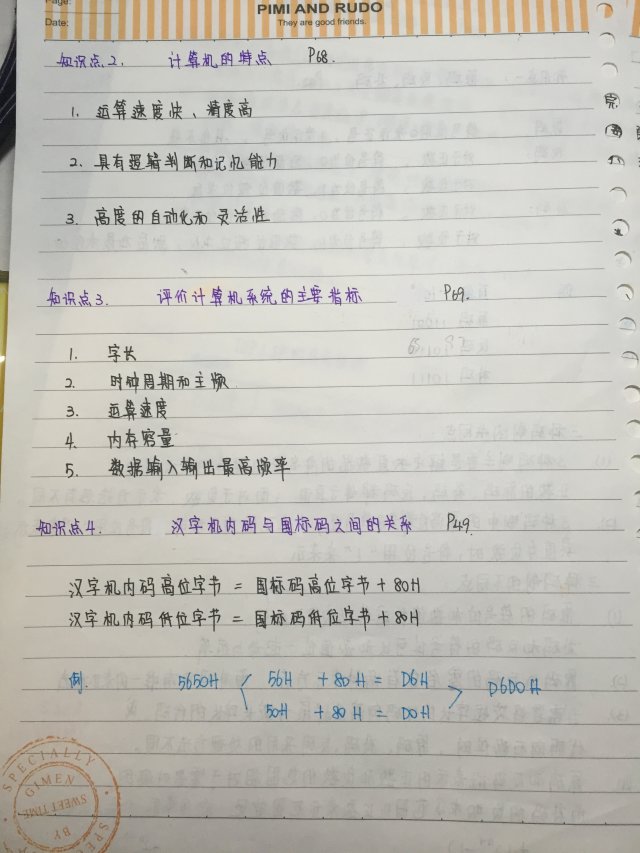 Page:
PIMI AND RUDO
Date:
They are good friends.
知识点2. 计算机的特点 P68.
1. 运算速度快、精度高
2. 具有逻辑判断和记忆能力
3. 高度的自动化和灵活性
知识点3. 评价计算机系统的主要指标 P69.
1. 字长
2. 时钟周期和主频
3. 运算速度
4. 内存容量
5. 数据输入输出最高频率
知识点4. 汉字机内码与国标码之间的关系 P49.
汉字机内码高位字节 = 国标码高位字节 + 80H
汉字机内码低位字节 = 国标码低位字节 + 80H
例. 5650H 56H + 80H = D6H D6D0H
50H + 80H = D0H
SPECIALLY
GAMEN
SWEET TIME
BY